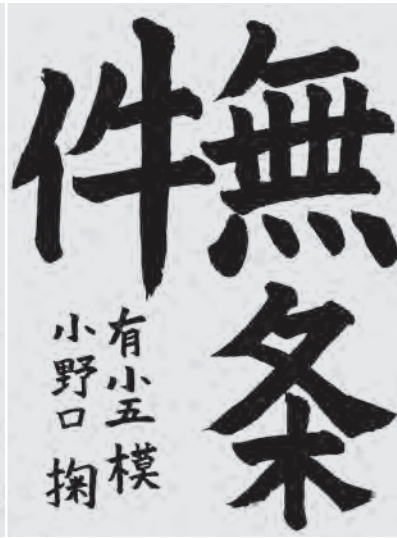 無条
件
有小五 模
小野口 掬